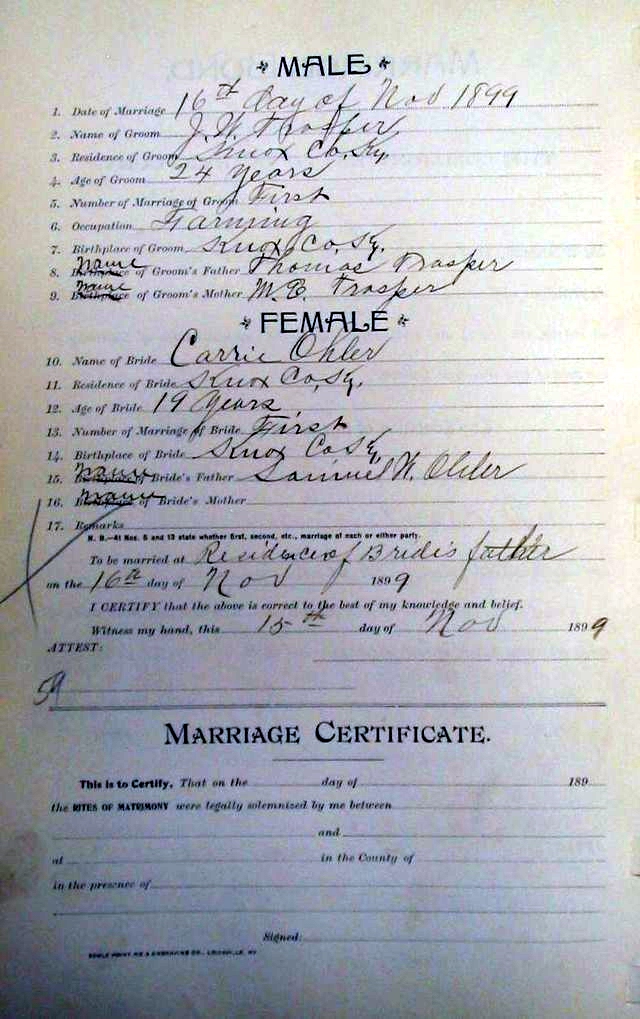 MALE
1. Date of Marriage 16th day of Nov 1899
2. Name of Groom J. W. Trosper
3. Residence of Groom Knox Co, Ky.
4. Age of Groom 24 Years
5. Number of Marriage of Groom First
6. Occupation Farming
7. Birthplace of Groom Knox Co. Ky.
8. Birthplace Name of Groom's Father Thomas Trosper
9. Birthplace Name of Groom's Mother M. E. Trosper
FEMALE
10. Name of Bride Carrie Ohler
11. Residence of Bride Knox Co, Ky.
12. Age of Bride 19 Years
13. Number of Marriage of Bride First
14. Birthplace of Bride Knox Co Ky
15. Birthplace Name of Bride's Father Samuel W. Ohler
16. Birthplace Name of Bride's Mother
17. Remarks
N. B.—At Nos. 5 and 13 state whether first, second, etc., marriage of each or either party.
To be married at Residence of Bride's father
on the 16th day of Nov 1899
I CERTIFY that the above is correct to the best of my knowledge and belief.
Witness my hand, this 15th day of Nov 1899
ATTEST:
59
MARRIAGE CERTIFICATE.
This is to Certify, That on the day of 189
the RITES OF MATRIMONY were legally solemnized by me between
and
at in the County of
in the presence of
Signed: